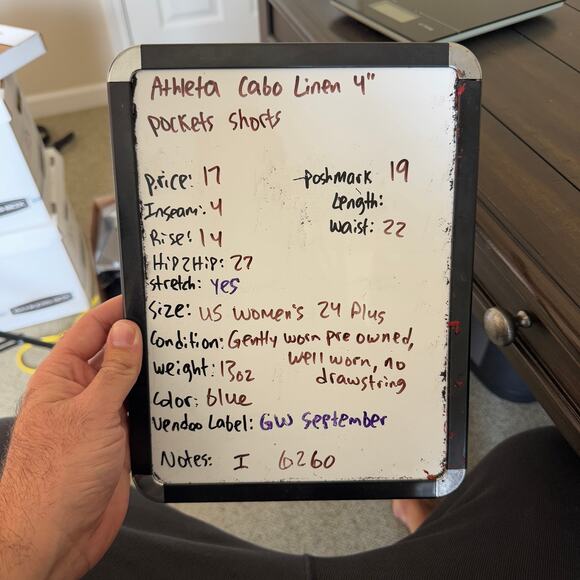 Athleta Cabo Linen 4"
pockets shorts
price: 17
poshmark 19
Inseam: 4
Length:
Rise: 14
waist: 22
Hip2Hip: 27
stretch: yes
Size: US Women's 24 Plus
Condition: Gently worn pre owned,
well worn, no
drawstring
weight: 13oz
Color: blue
Vendoo Label: GW September
Notes: I 6260